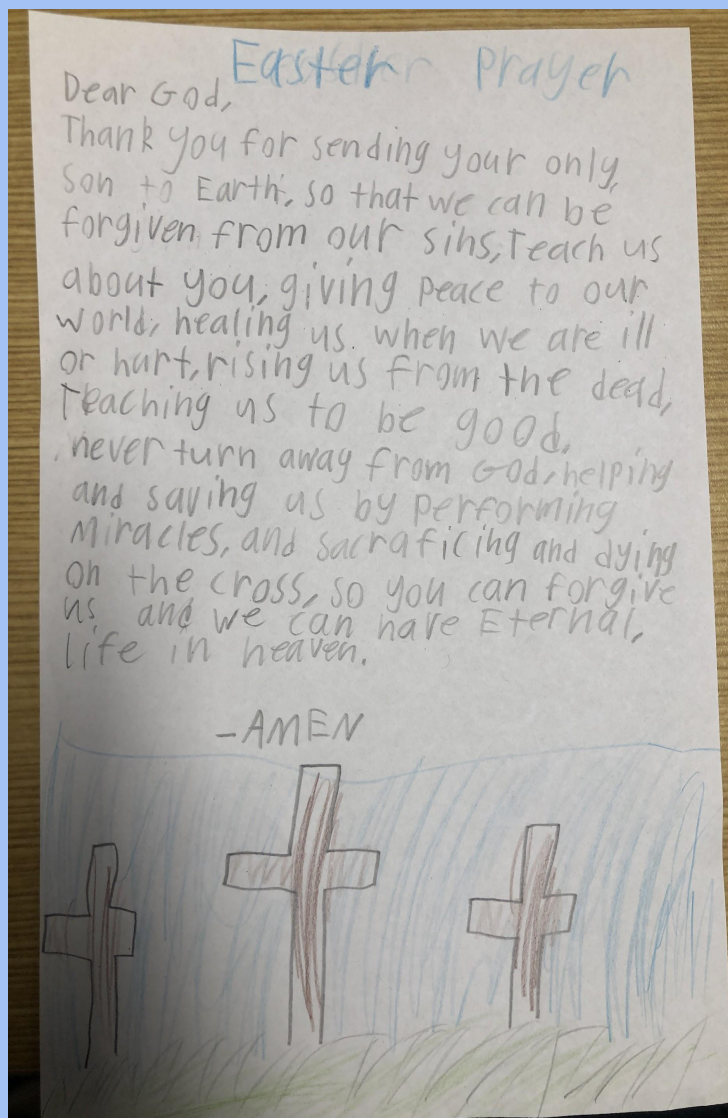 Easter Prayer
Dear God,
Thank you for sending your only
Son to Earth, so that we can be
forgiven from our sins, Teach us
about you, giving peace to our
world, healing us when we are ill
or hurt, rising us from the dead,
Teaching us to be good,
never turn away from God, helping
and saving us by performing
Miracles, and sacraficing and dying
on the cross, so you can forgive
us and we can have Eternal,
life in heaven.
-AMEN